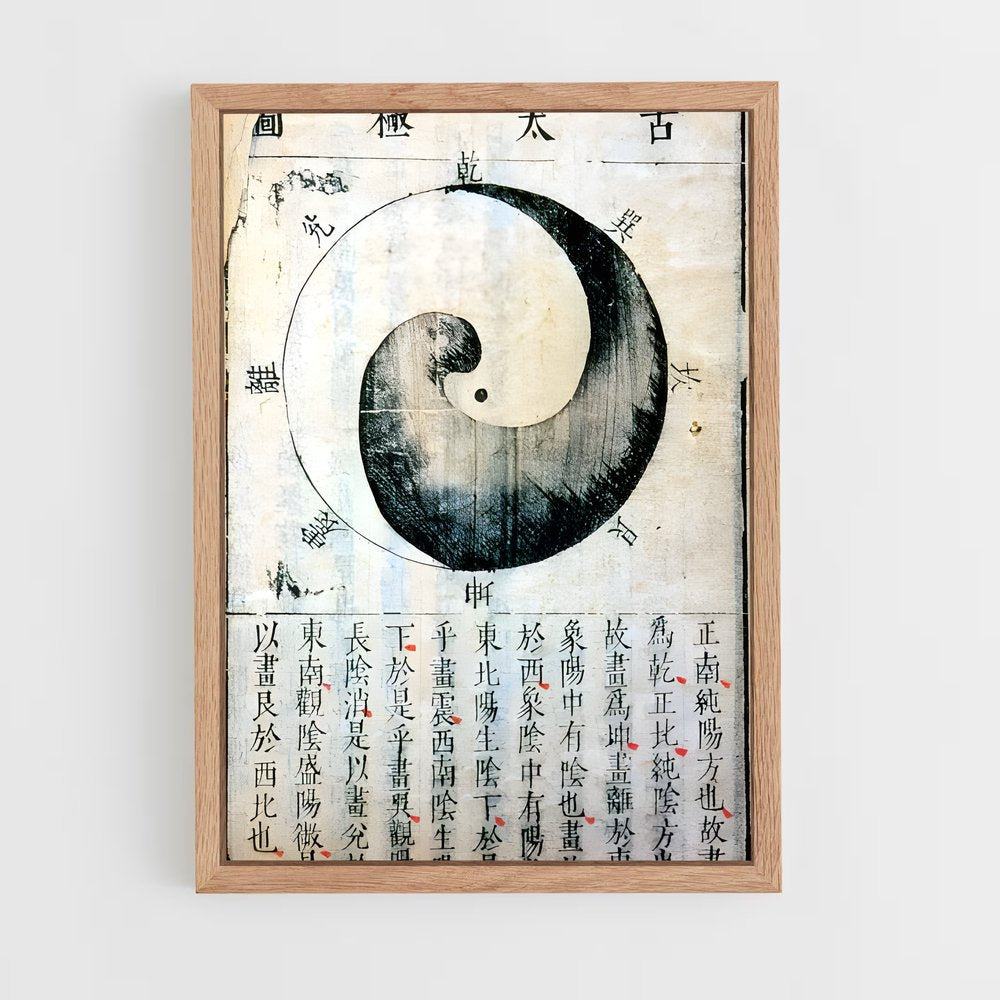 古太極圖
乾
兌
巽
離
坎
震
艮
坤
正南純陽方也故畫
爲乾正北純陰方也
故畫爲坤畫離於東
象陽中有陰也畫
於西象陰中有陽
東北陽生陰下於是
乎畫震西南陰生
下於是乎畫巽觀陽
長陰消是以畫兌
東南觀陰盛陽微是
以畫艮於西北也